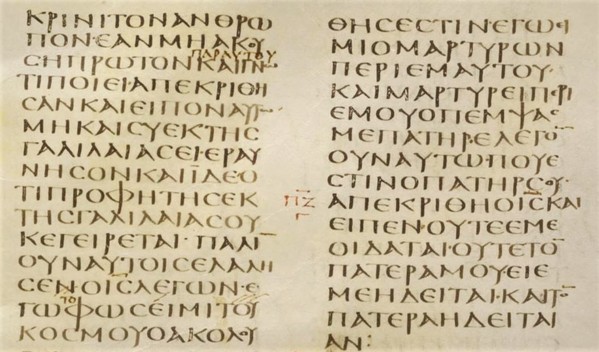 ΚΡΙΝΙΤΟΝΑΝΘΡΩ
ΠΟΝΕΑΝΜΗΑΚΟΥ
ΠΑΡΑΥΤΟΥ
ϹΗΠΡΩΤΟΝΚΑΙΓΝ
ΤΙΠΟΙΕΙ·ΑΠΕΚΡΙΘΗ
ϹΑΝΚΑΙΕΙΠΟΝΑΥΤ
ΜΗΚΑΙϹΥΕΚΤΗϹ
ΓΑΛΙΛΑΙΑϹΕΙ·ΕΡΑΥ
ΝΗϹΟΝΚΑΙΪΔΕΟ
ΤΙΠΡΟΦΗΤΗϹΕΚ
ΤΗϹΓΑΛΙΛΑΙΑϹΟΥ
ΚΕΓΕΙΡΕΤΑΙ·ΠΑΛΙ̅
ΟΥΝΑΥΤΟΙϹΕΛΑΛΗ
ϹΕΝΟΙϹΛΕΓΩΝ·Ε
ΤΟ
ΓΩΦΩϹΕΙΜΙΤΟΥ
ΚΟϹΜΟΥΟΑΚΟΛΟΥ
ΠΖ
Γ
ΘΗϹΕϹΤΙΝ·ΕΓΩΕΙ
ΜΙΟΜΑΡΤΥΡΩΝ
ΠΕΡΙΕΜΑΥΤΟΥ·
ΚΑΙΜΑΡΤΥΡΕΙΠΕΡΙ
ΕΜΟΥΟΠΕΜΨΑϹ
ΜΕΠΑΤΗΡ·ΕΛΕΓΟ̅
ΟΥΝΑΥΤΩ·ΠΟΥΕ
ϹΤΙΝΟΠΑΤΗΡϹΟΥ·
ΑΠΕΚΡΙΘΗΟΙ̅Ϲ̅ΚΑΙ
ΕΙΠΕΝ·ΟΥΤΕΕΜΕ
ΟΙΔΑΤΑΙ·ΟΥΤΕΤΟ̅
ΠΑΤΕΡΑΜΟΥΕΙΕ
ΜΕΗΔΕΙΤΑΙ·ΚΑΙΤΟ̅
ΠΑΤΕΡΑΗΔΕΙΤΑΙ
ΑΝ: